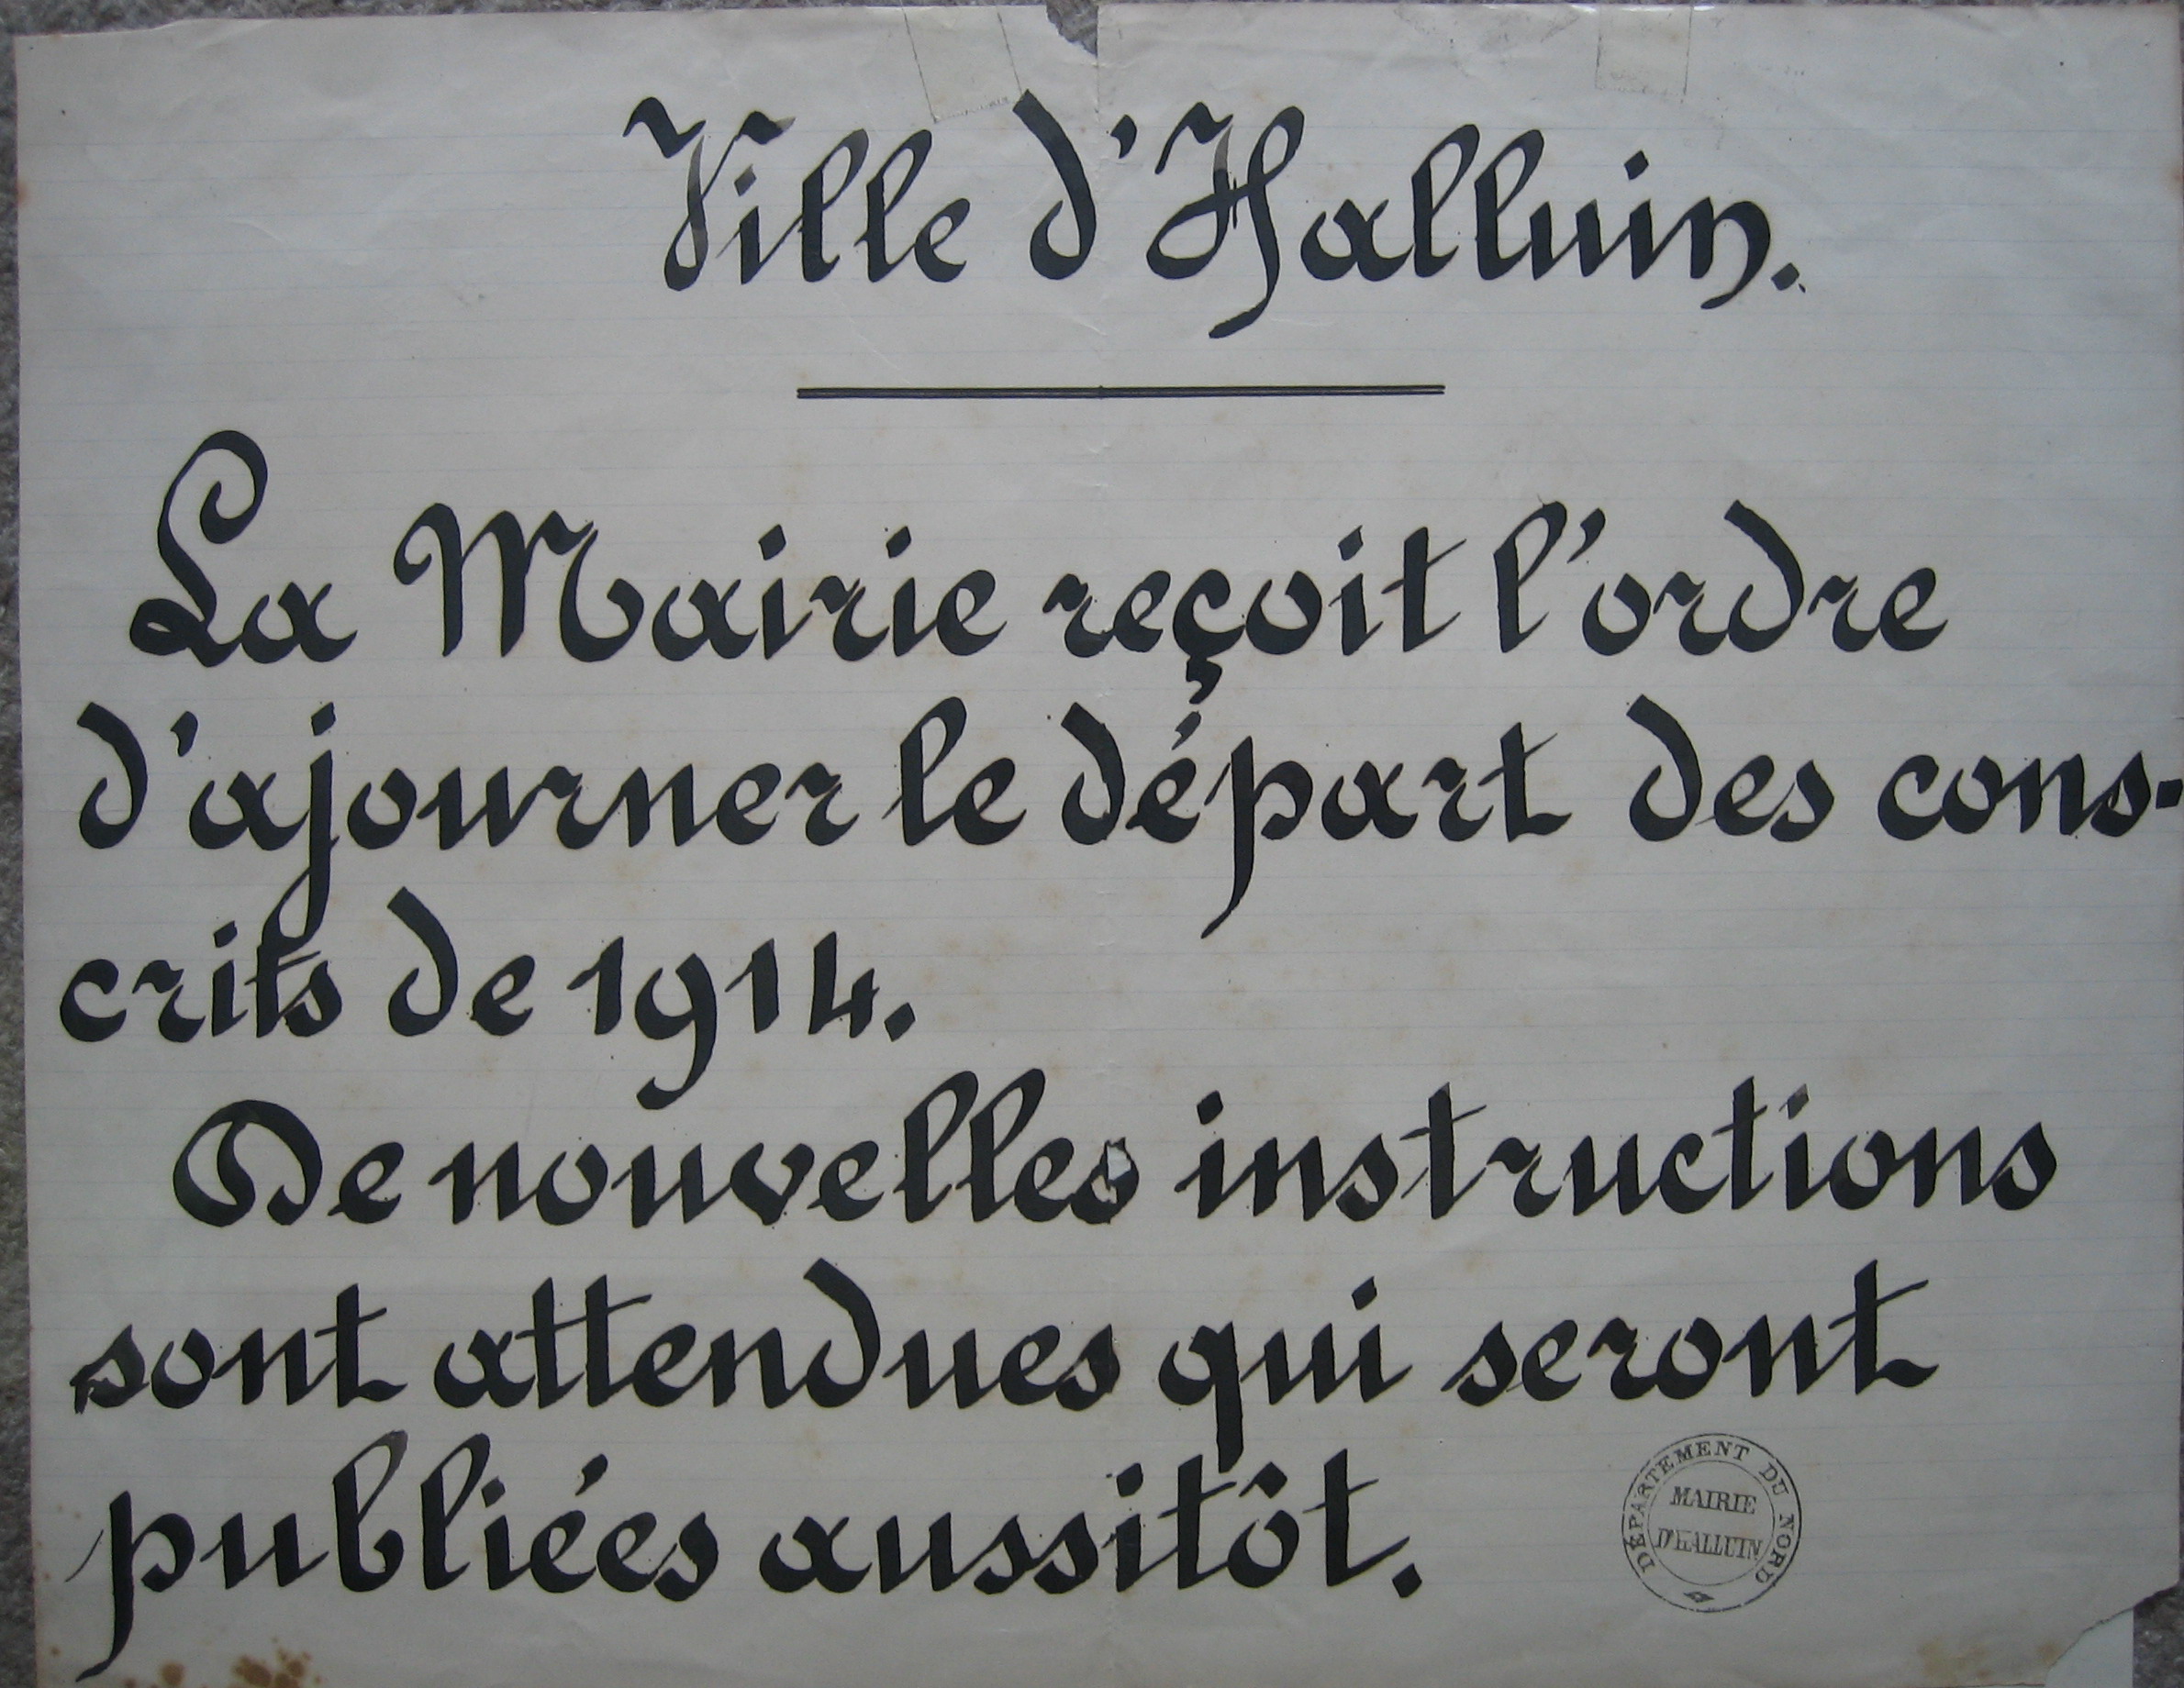 Ville d'Halluin.
La Mairie reçoit l'ordre
d'ajourner le départ des cons-
crits de 1914.
De nouvelles instructions
sont attendues qui seront
publiées aussitôt.
DÉPARTEMENT DU NORD
MAIRIE
D'HALLUIN